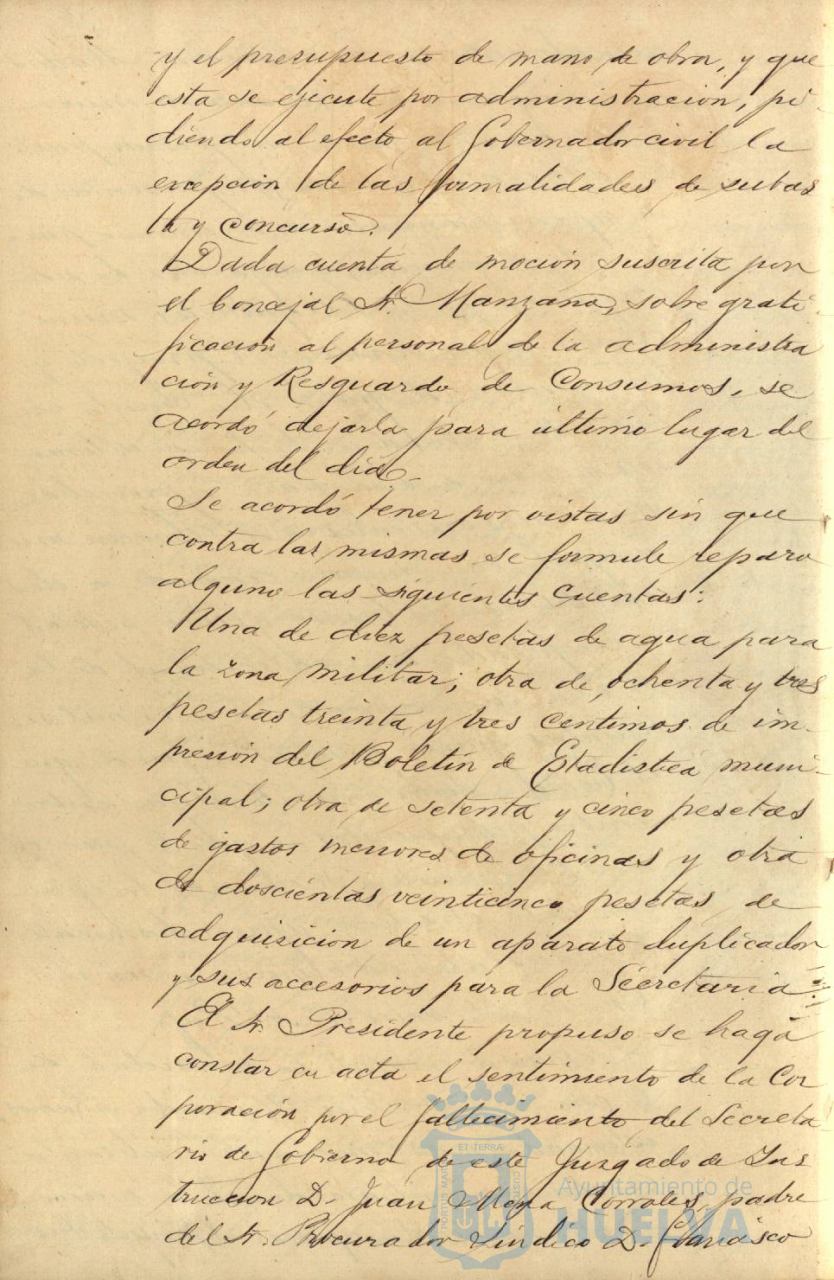 y el presupuesto de mano de obra, y que
esta se ejecute por administracion, pi-
diendo al efecto al Gobernador civil la
excepción de las formalidades de subas
ta y concurso.
Dada cuenta de moción suscrita por
el Concejal Sr. Manzano, sobre grati-
ficacion al personal de la administra
ción y Resguardo de Consumos, se
acordó dejarla para último lugar del
orden del día.
Se acordó tener por vistas sin que
contra las mismas se formule reparo
alguno las siguientes cuentas:
Una de diez pesetas de agua para
la zona militar; otra de ochenta y tres
pesetas treinta y tres centimos de im-
presión del Boletín de Estadistica muni-
cipal; otra de setenta y cinco pesetas
de gastos menores de oficinas y otra
de doscientas veinticinco pesetas de
adquisicion de un aparato duplicador
y sus accesorios para la Secretaria.
El Sr. Presidente propuso se haga
constar en acta el sentimiento de la Cor
poración por el fallecimiento del Secreta
rio de Gobierno de este Juzgado de Ins
truccion D. Juan Moya Corrales, padre
del Sr. Procurador Sindico D. Francisco
Ayuntamiento de
HUELVA